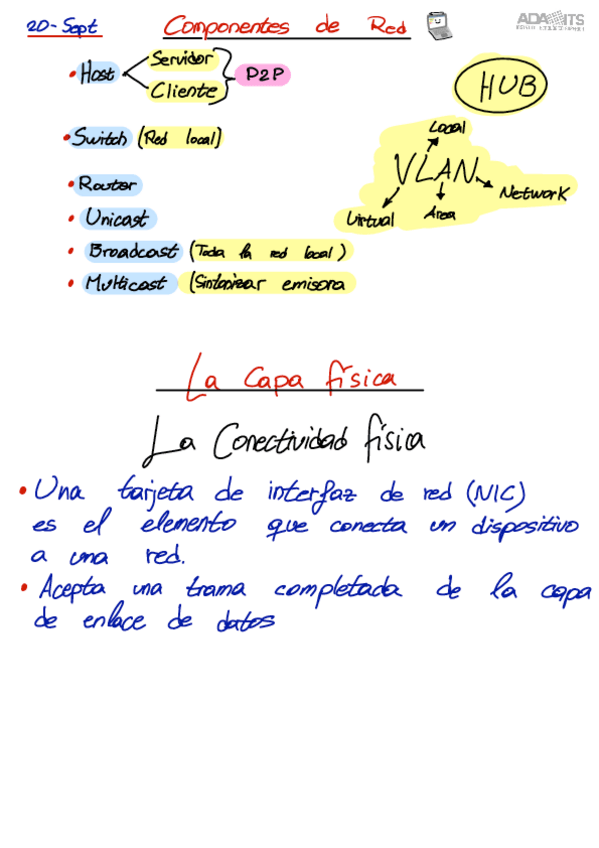 20-Sept Componentes de Red
ADA ITS
Host Servidor
Cliente
P2P
HUB
Switch (Red local)
Router
Unicast
Broadcast (Toda la red local)
Multicast (Sintonizar emisora
Local
VLAN
Network
Virtual Area
La Capa física
La Conectividad física
Una tarjeta de interfaz de red (NIC)
es el elemento que conecta un dispositivo
a una red.
Acepta una trama completada de la capa
de enlace de datos